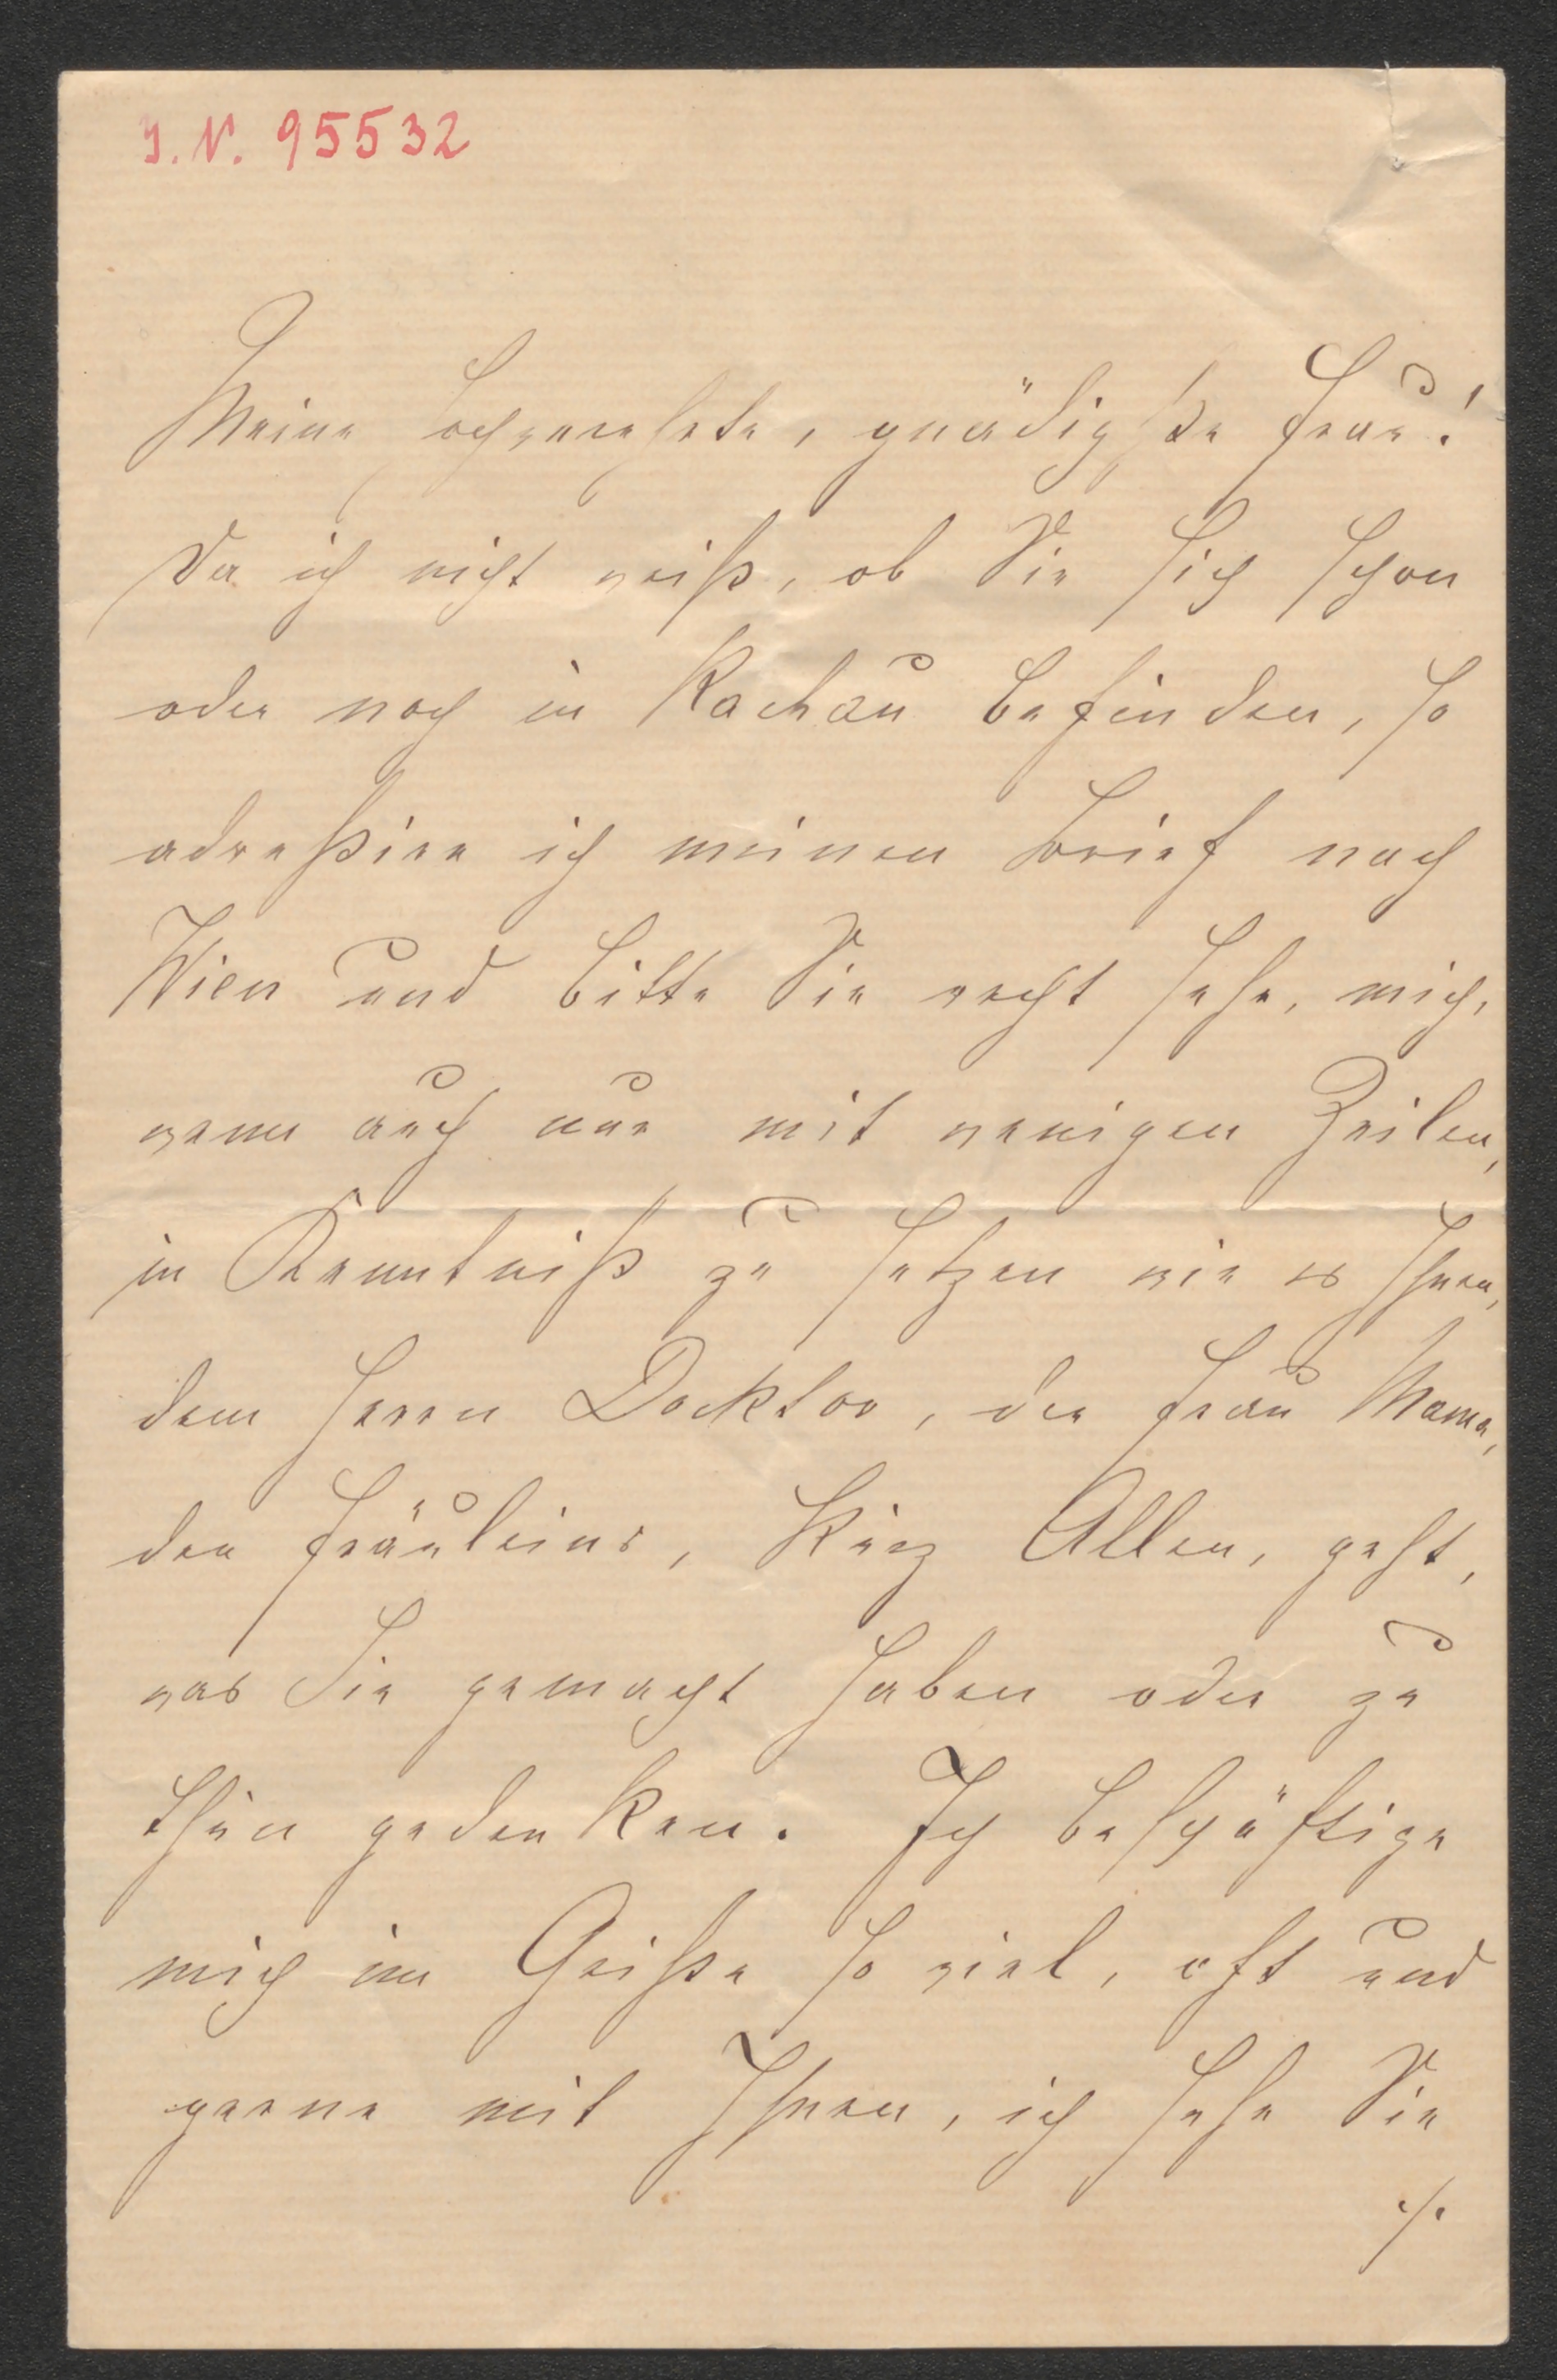 J. N. 95532
Meine hochverehrte, gnädigste Frau!
Da ich nicht weiß, ob Sie sich schon
oder noch in Rachau befinden, so
adressire ich meinen Brief nach
Wien und bitte Sie recht sehr, mich,
wenn auch nur mit wenigen Zeilen,
in Kenntniß zu setzen wie es Ihnen,
dem Herrn Docktor, der Frau Mama,
den Fräuleins, kurz Allen, geht,
was Sie gemacht haben oder zu
thun gedenken. Ich beschäftige
mich im Geiste so viel, oft und
gerne mit Ihnen, ich sehe Sie
./.